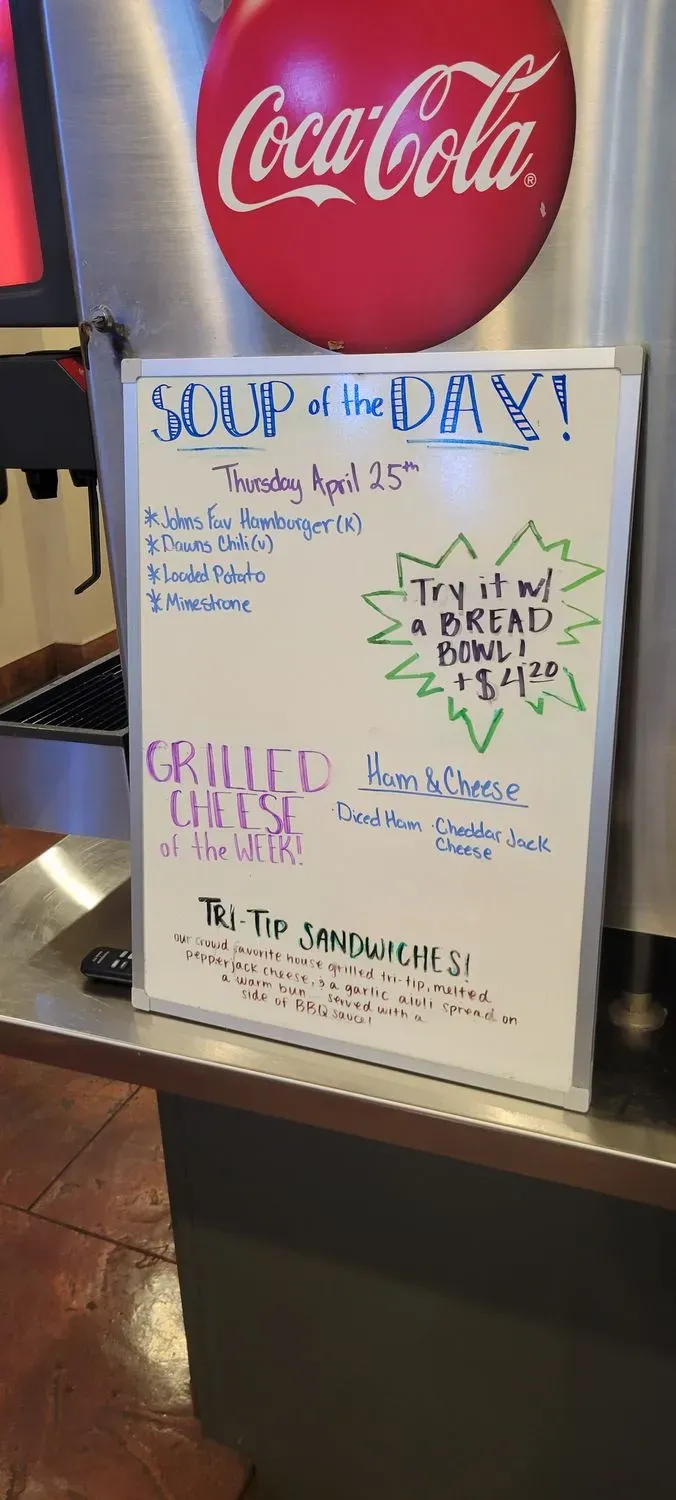 Coca-Cola®
SOUP of the DAY!
Thursday April 25th
*Johns Fav Hamburger (K)
*Dawns Chili (v)
*Loaded Potato
*Minestrone
Try it w/
a BREAD
BOWL!
+$4.20
GRILLED
CHEESE
of the WEEK!
Ham & Cheese
·Diced Ham ·Cheddar Jack
Cheese
TRI-TIP SANDWICHES!
our crowd favorite house grilled tri-tip, melted
pepperjack cheese, & a garlic aioli spread on
a warm bun served with a
side of BBQ sauce!